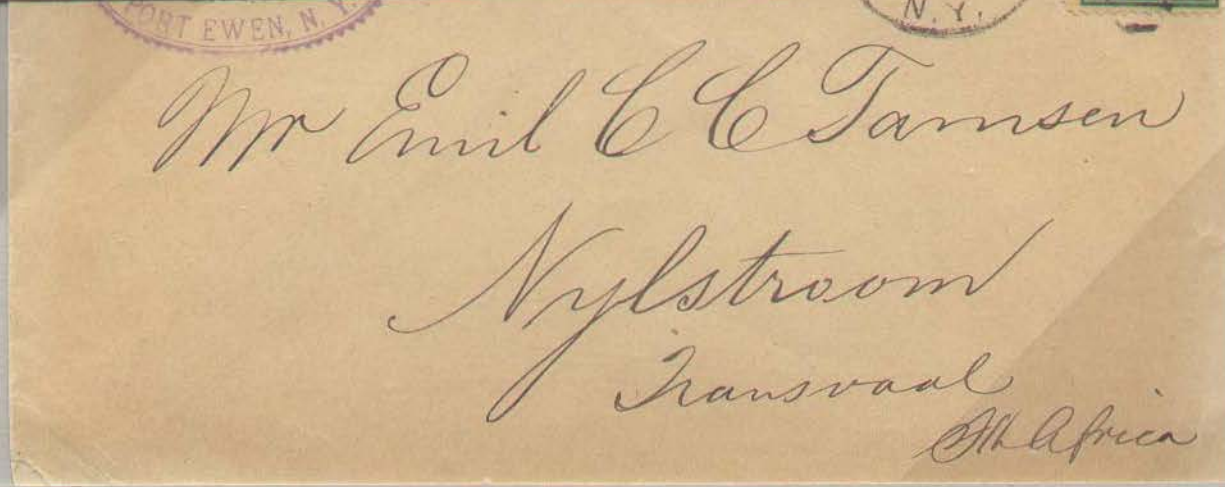 PORT EWEN, N. Y.
N. Y.
Mr Emil C C Tamsen
Nylstroom
Transvaal
Sth Africa